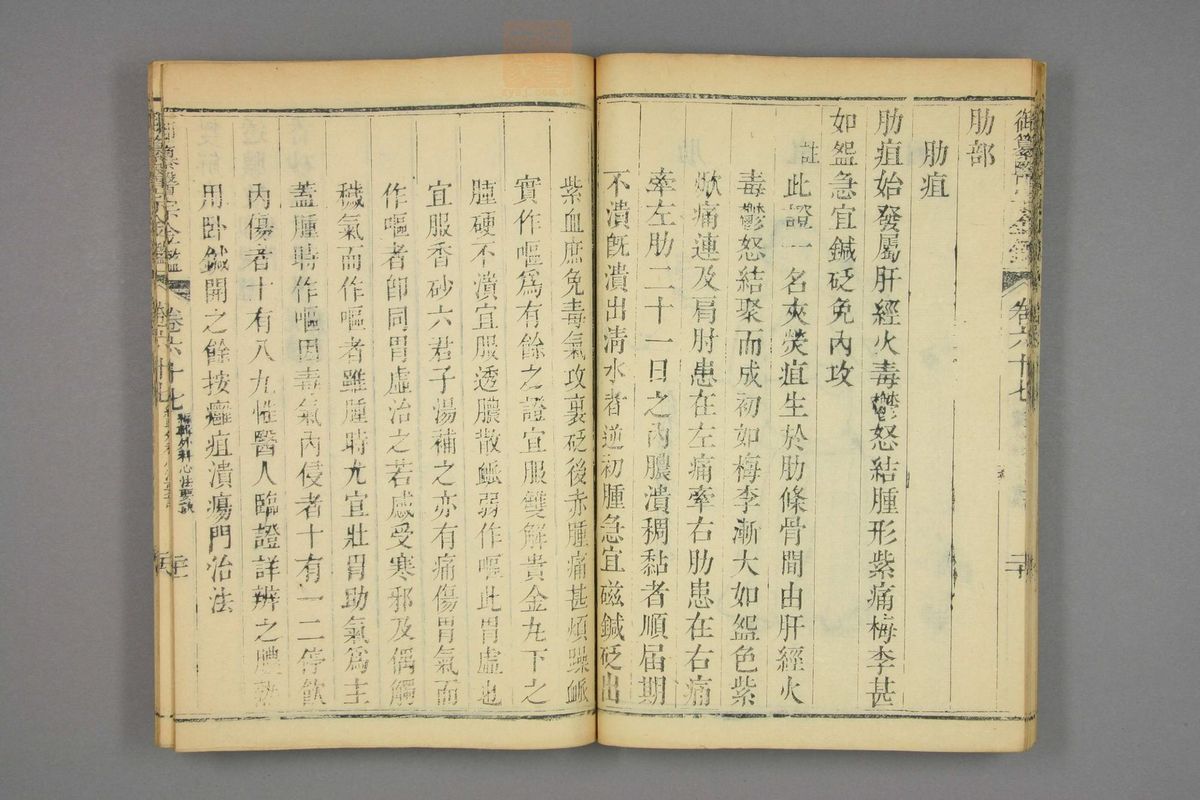 御纂醫宗金鑑
卷六十七
肋部
肋疽
肋疽始發屬肝經火毒鬱怒結腫形紫痛梅李甚
如盌急宜鍼砭免內攻
註此證一名夾熒疽生於肋條骨間由肝經火
毒鬱怒結聚而成初如梅李漸大如盌色紫
焮痛連及肩肘患在左痛牽右肋患在右痛
牽左肋二十一日之內膿潰稠黏者順届期
不潰旣潰出清水者逆初腫急宜磁鍼砭出
紫血庶免毒氣攻裏砭後赤腫痛甚煩躁脈
實作嘔爲有餘之證宜服雙解貴金丸下之
腫硬不潰宜服透膿散脈弱作嘔此胃虛也
宜服香砂六君子湯補之亦有痛傷胃氣而
作嘔者卽同胃虛治之若感受寒邪及偶觸
穢氣而作嘔者雖腫時尤宜壯胃助氣爲主
蓋腫時作嘔因毒氣內侵者十有一二停飲
內傷者十有八九惟醫人臨證詳辨之膿熟
用卧鍼開之餘按癰疽潰瘍門治法
御纂醫宗金鑑
卷六十七
編輯外科心法要訣